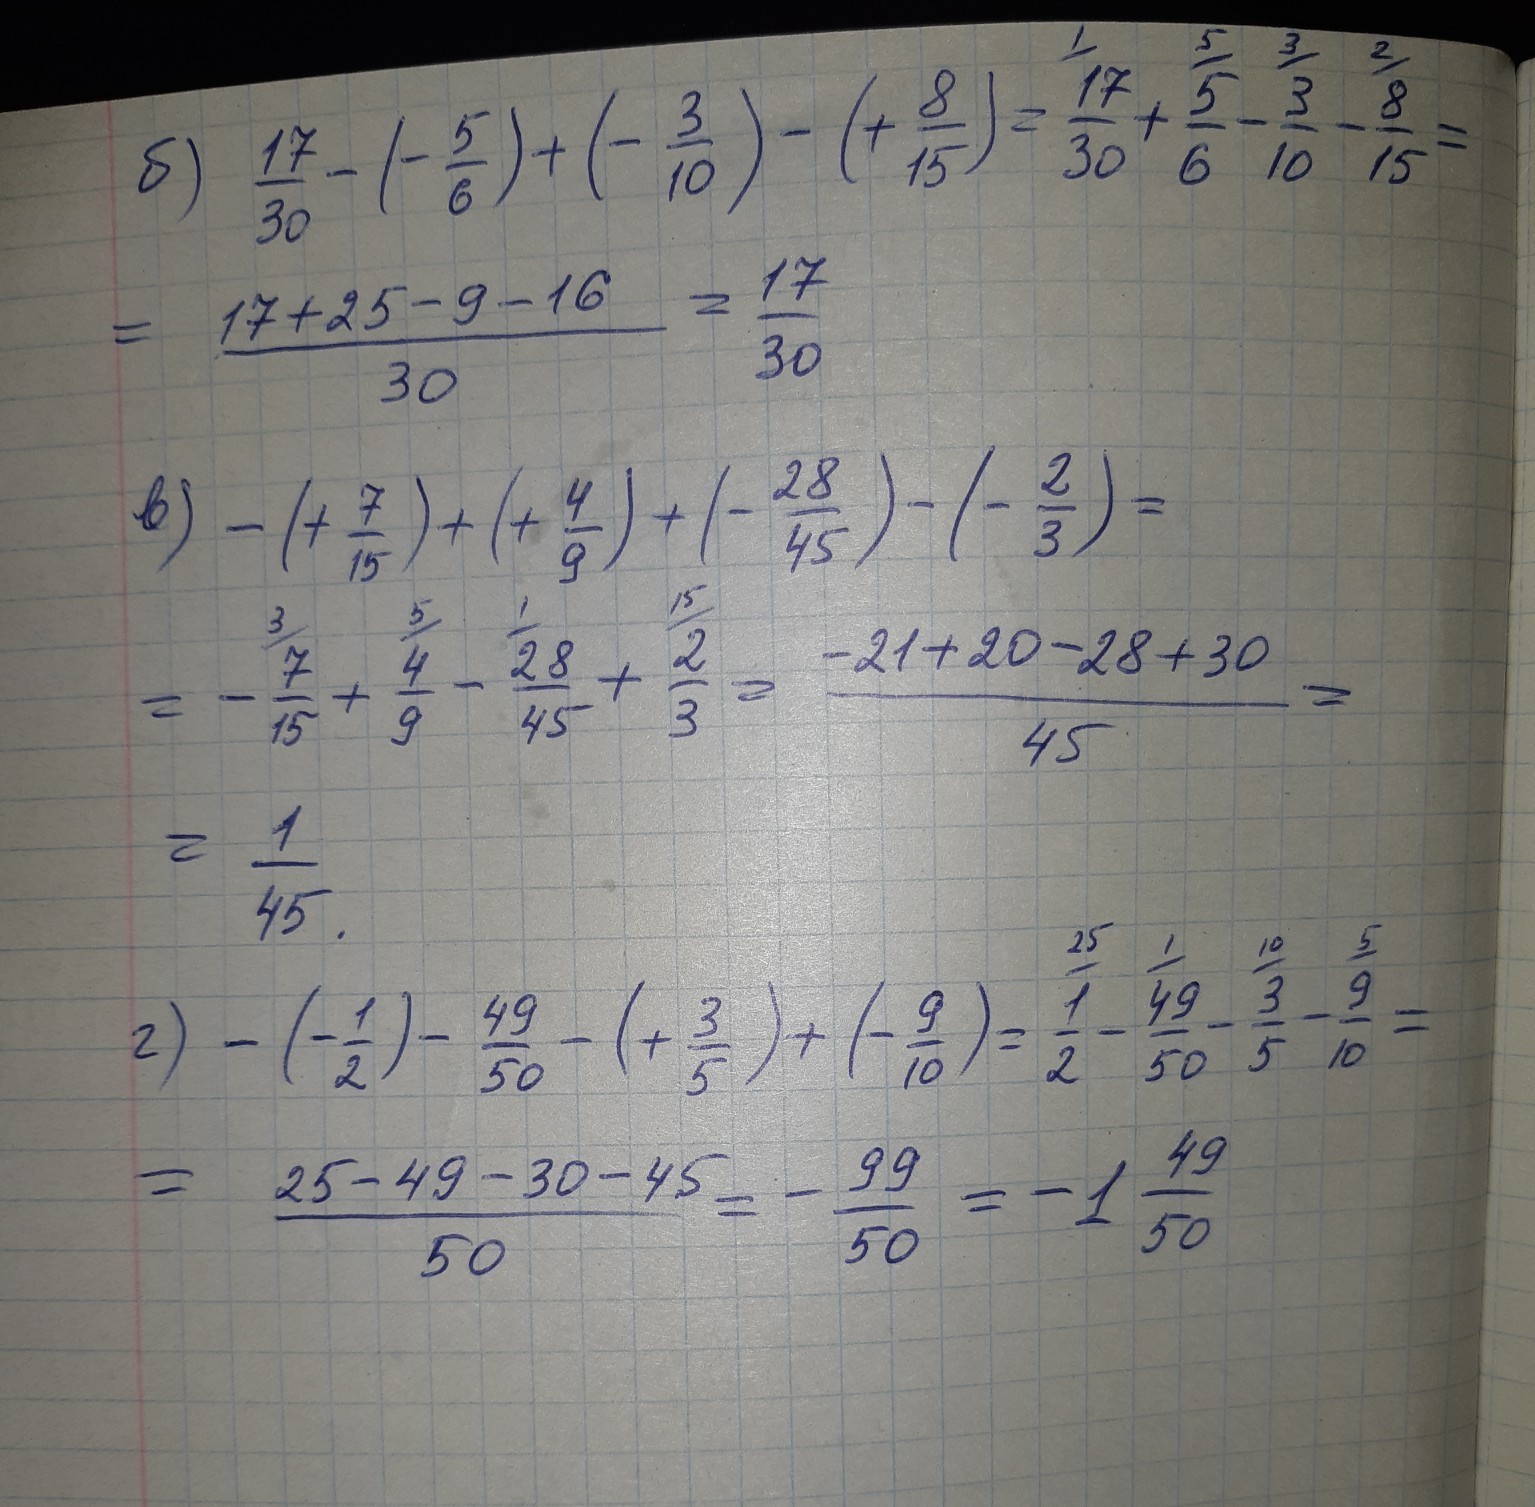 б) 17/30 - (- 5/6) + (- 3/10) - (+ 8/15) = 1/ 17/30 + 5/ 5/6 - 3/ 3/10 - 2/ 8/15 =
= (17+25-9-16)/30 = 17/30
в) - (+ 7/15) + (+ 4/9) + (- 28/45) - (- 2/3) =
= - 3/ 7/15 + 5/ 4/9 - 1/ 28/45 + 15/ 2/3 = (-21+20-28+30)/45 =
= 1/45.
г) - (- 1/2) - 49/50 - (+ 3/5) + (- 9/10) = 25/ 1/2 - 1/ 49/50 - 10/ 3/5 - 5/ 9/10 =
= (25-49-30-45)/50 = - 99/50 = -1 49/50